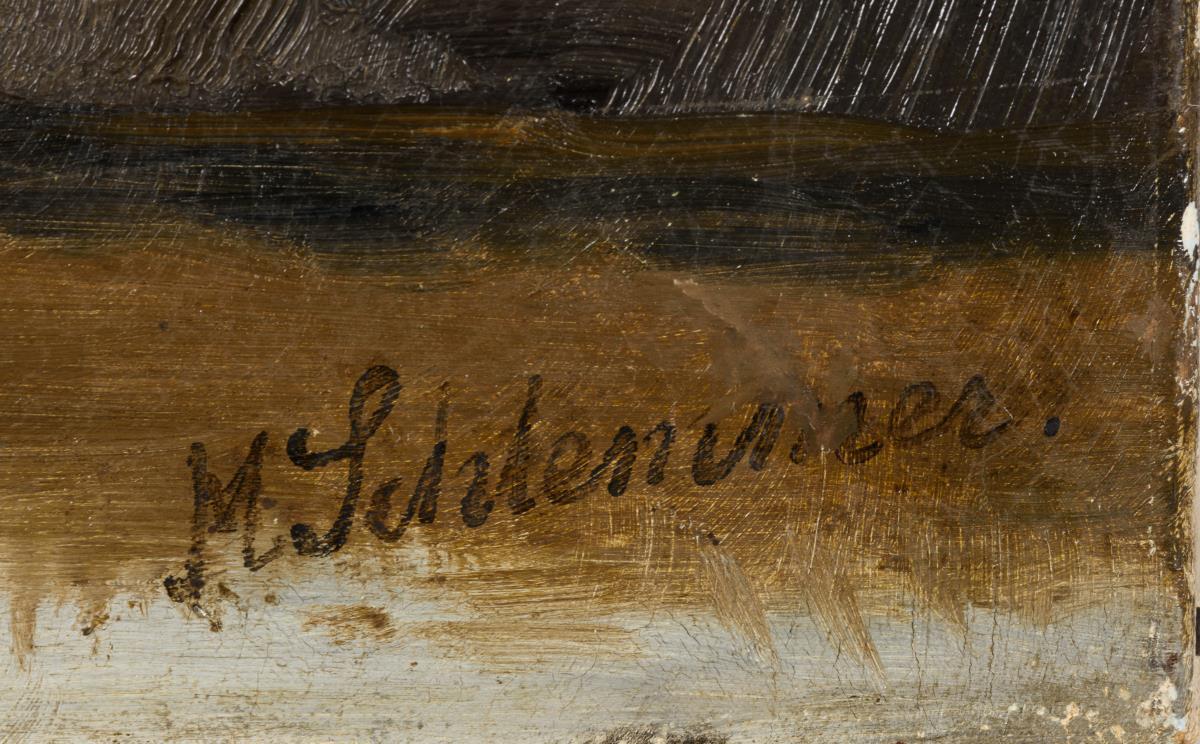 M. Schlemmer.